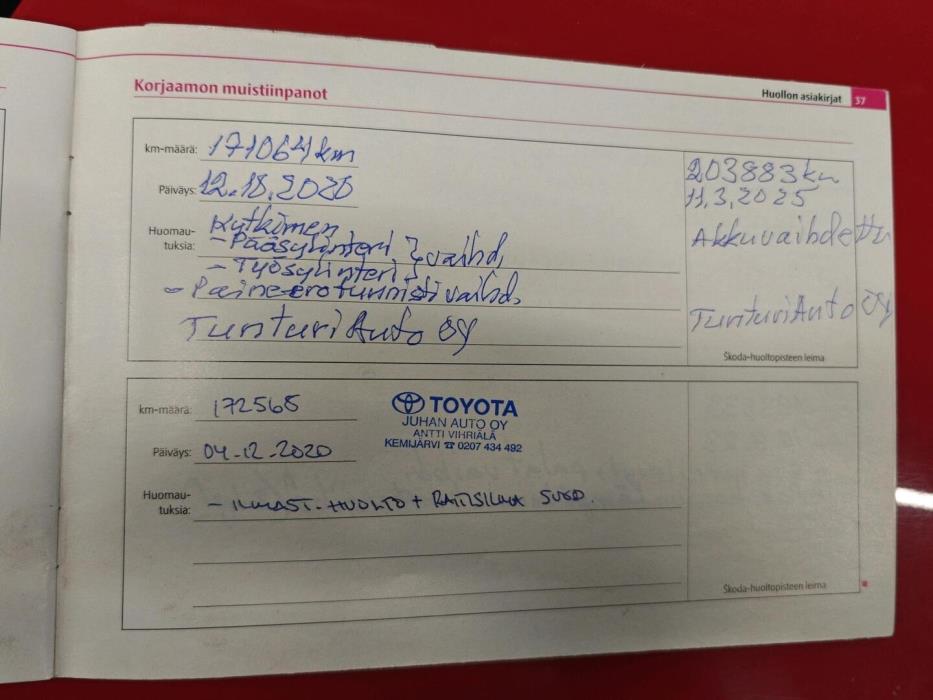 Korjaamon muistiinpanot
Huollon asiakirjat 37
km-määrä: 171064 km
Päiväys: 12.18.2020
Huomau-
tuksia:
Kytkimen
- Pääsylinteri } vaihd,
- Työsylinteri }
- Paine-erotunnisti vaihd,
Tunturi Auto OY
203883 km
11.3.2025
Akku vaihdettu
Tunturi Auto OY
Škoda-huoltopisteen leima
km-määrä: 172565
Päiväys: 04-12-2020
TOYOTA
JUHAN AUTO OY
ANTTI VIHRIÄLÄ
KEMIJÄRVI ☎ 0207 434 492
Huomau-
tuksia:
- ILMAST. HUOLTO + RAITISILMA SUOD.
Škoda-huoltopisteen leima